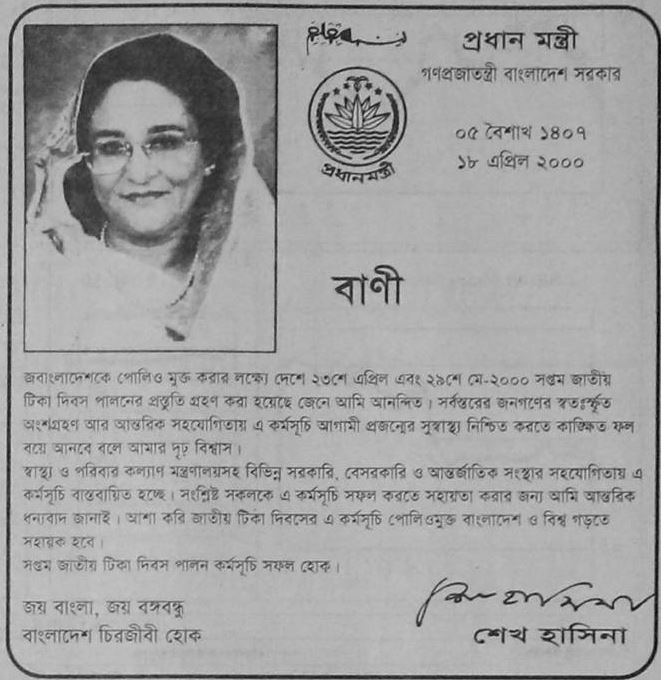 প্রধান মন্ত্রী
গণপ্রজাতন্ত্রী বাংলাদেশ সরকার
০৫ বৈশাখ ১৪০৭
১৮ এপ্রিল ২০০০
প্রধানমন্ত্রী
বাণী
জবাংলাদেশকে পোলিও মুক্ত করার লক্ষ্যে দেশে ২৩শে এপ্রিল এবং ২৯শে মে-২০০০ সপ্তম জাতীয়
টিকা দিবস পালনের প্রস্তুতি গ্রহণ করা হয়েছে জেনে আমি আনন্দিত। সর্বস্তরের জনগণের স্বতঃস্ফূর্ত
অংশগ্রহণ আর আন্তরিক সহযোগিতায় এ কর্মসূচি আগামী প্রজন্মের সুস্বাস্থ্য নিশ্চিত করতে কাঙ্ক্ষিত ফল
বয়ে আনবে বলে আমার দৃঢ় বিশ্বাস।
স্বাস্থ্য ও পরিবার কল্যাণ মন্ত্রণালয়সহ বিভিন্ন সরকারি, বেসরকারি ও আন্তর্জাতিক সংস্থার সহযোগিতায় এ
কর্মসূচি বাস্তবায়িত হচ্ছে। সংশ্লিষ্ট সকলকে এ কর্মসূচি সফল করতে সহায়তা করার জন্য আমি আন্তরিক
ধন্যবাদ জানাই। আশা করি জাতীয় টিকা দিবসের এ কর্মসূচি পোলিওমুক্ত বাংলাদেশ ও বিশ্ব গড়তে
সহায়ক হবে।
সপ্তম জাতীয় টিকা দিবস পালন কর্মসূচি সফল হোক।
জয় বাংলা, জয় বঙ্গবন্ধু
বাংলাদেশ চিরজীবী হোক
শেখ হাসিনা